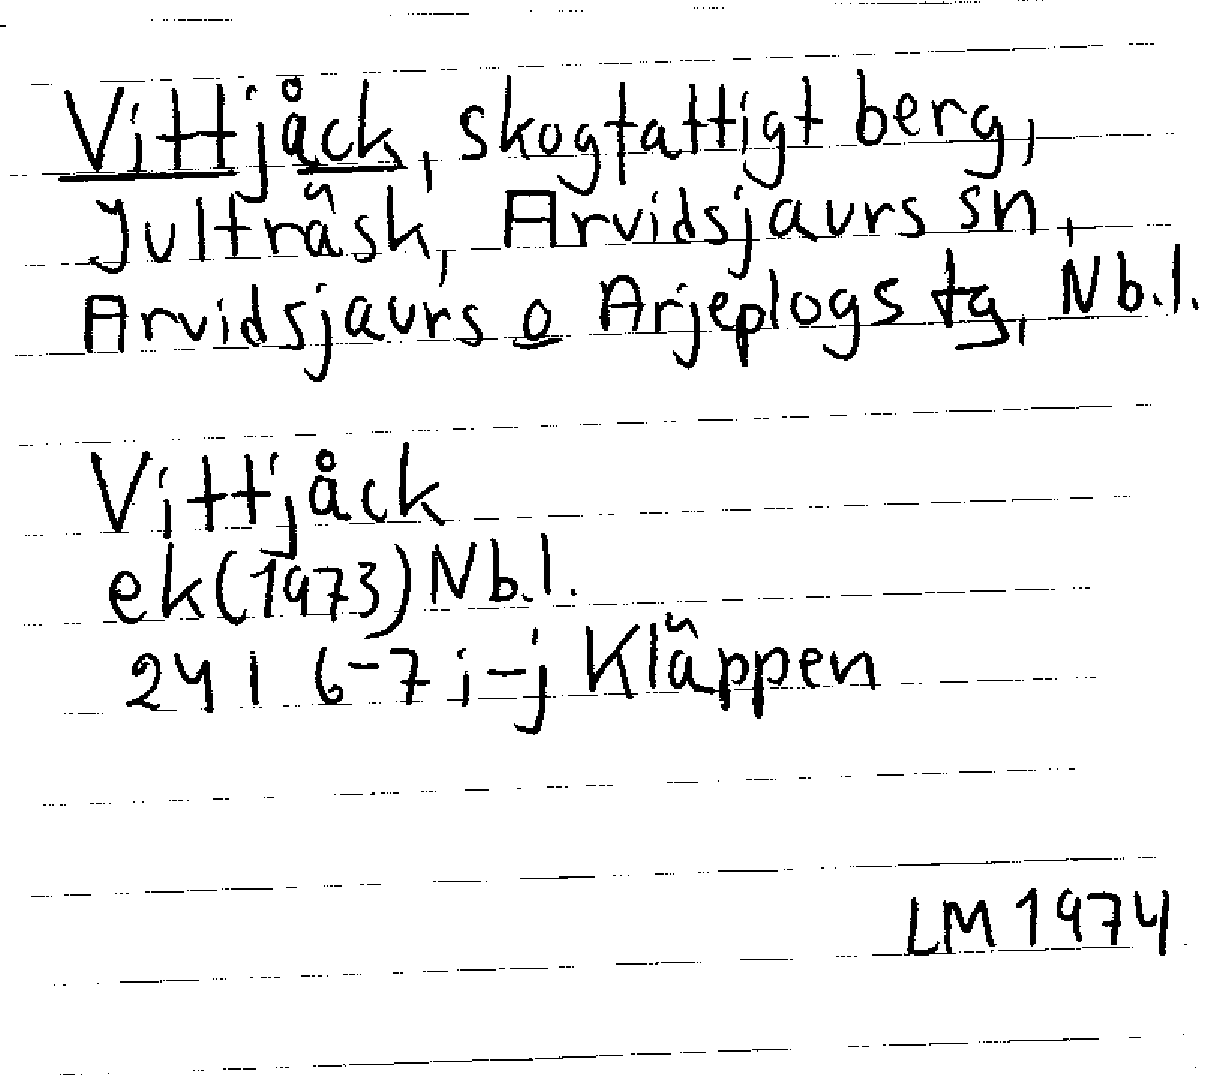 Vittjåck, skogfattigt berg,
Jultråsk, Arvidsjaurs sn,
Arvidsjaurs o Arjeplogs tg, Nb.l.
Vittjåck
ek(1973)Nb.l.
24 I 6-7 i-j Kläppen
LM 1974